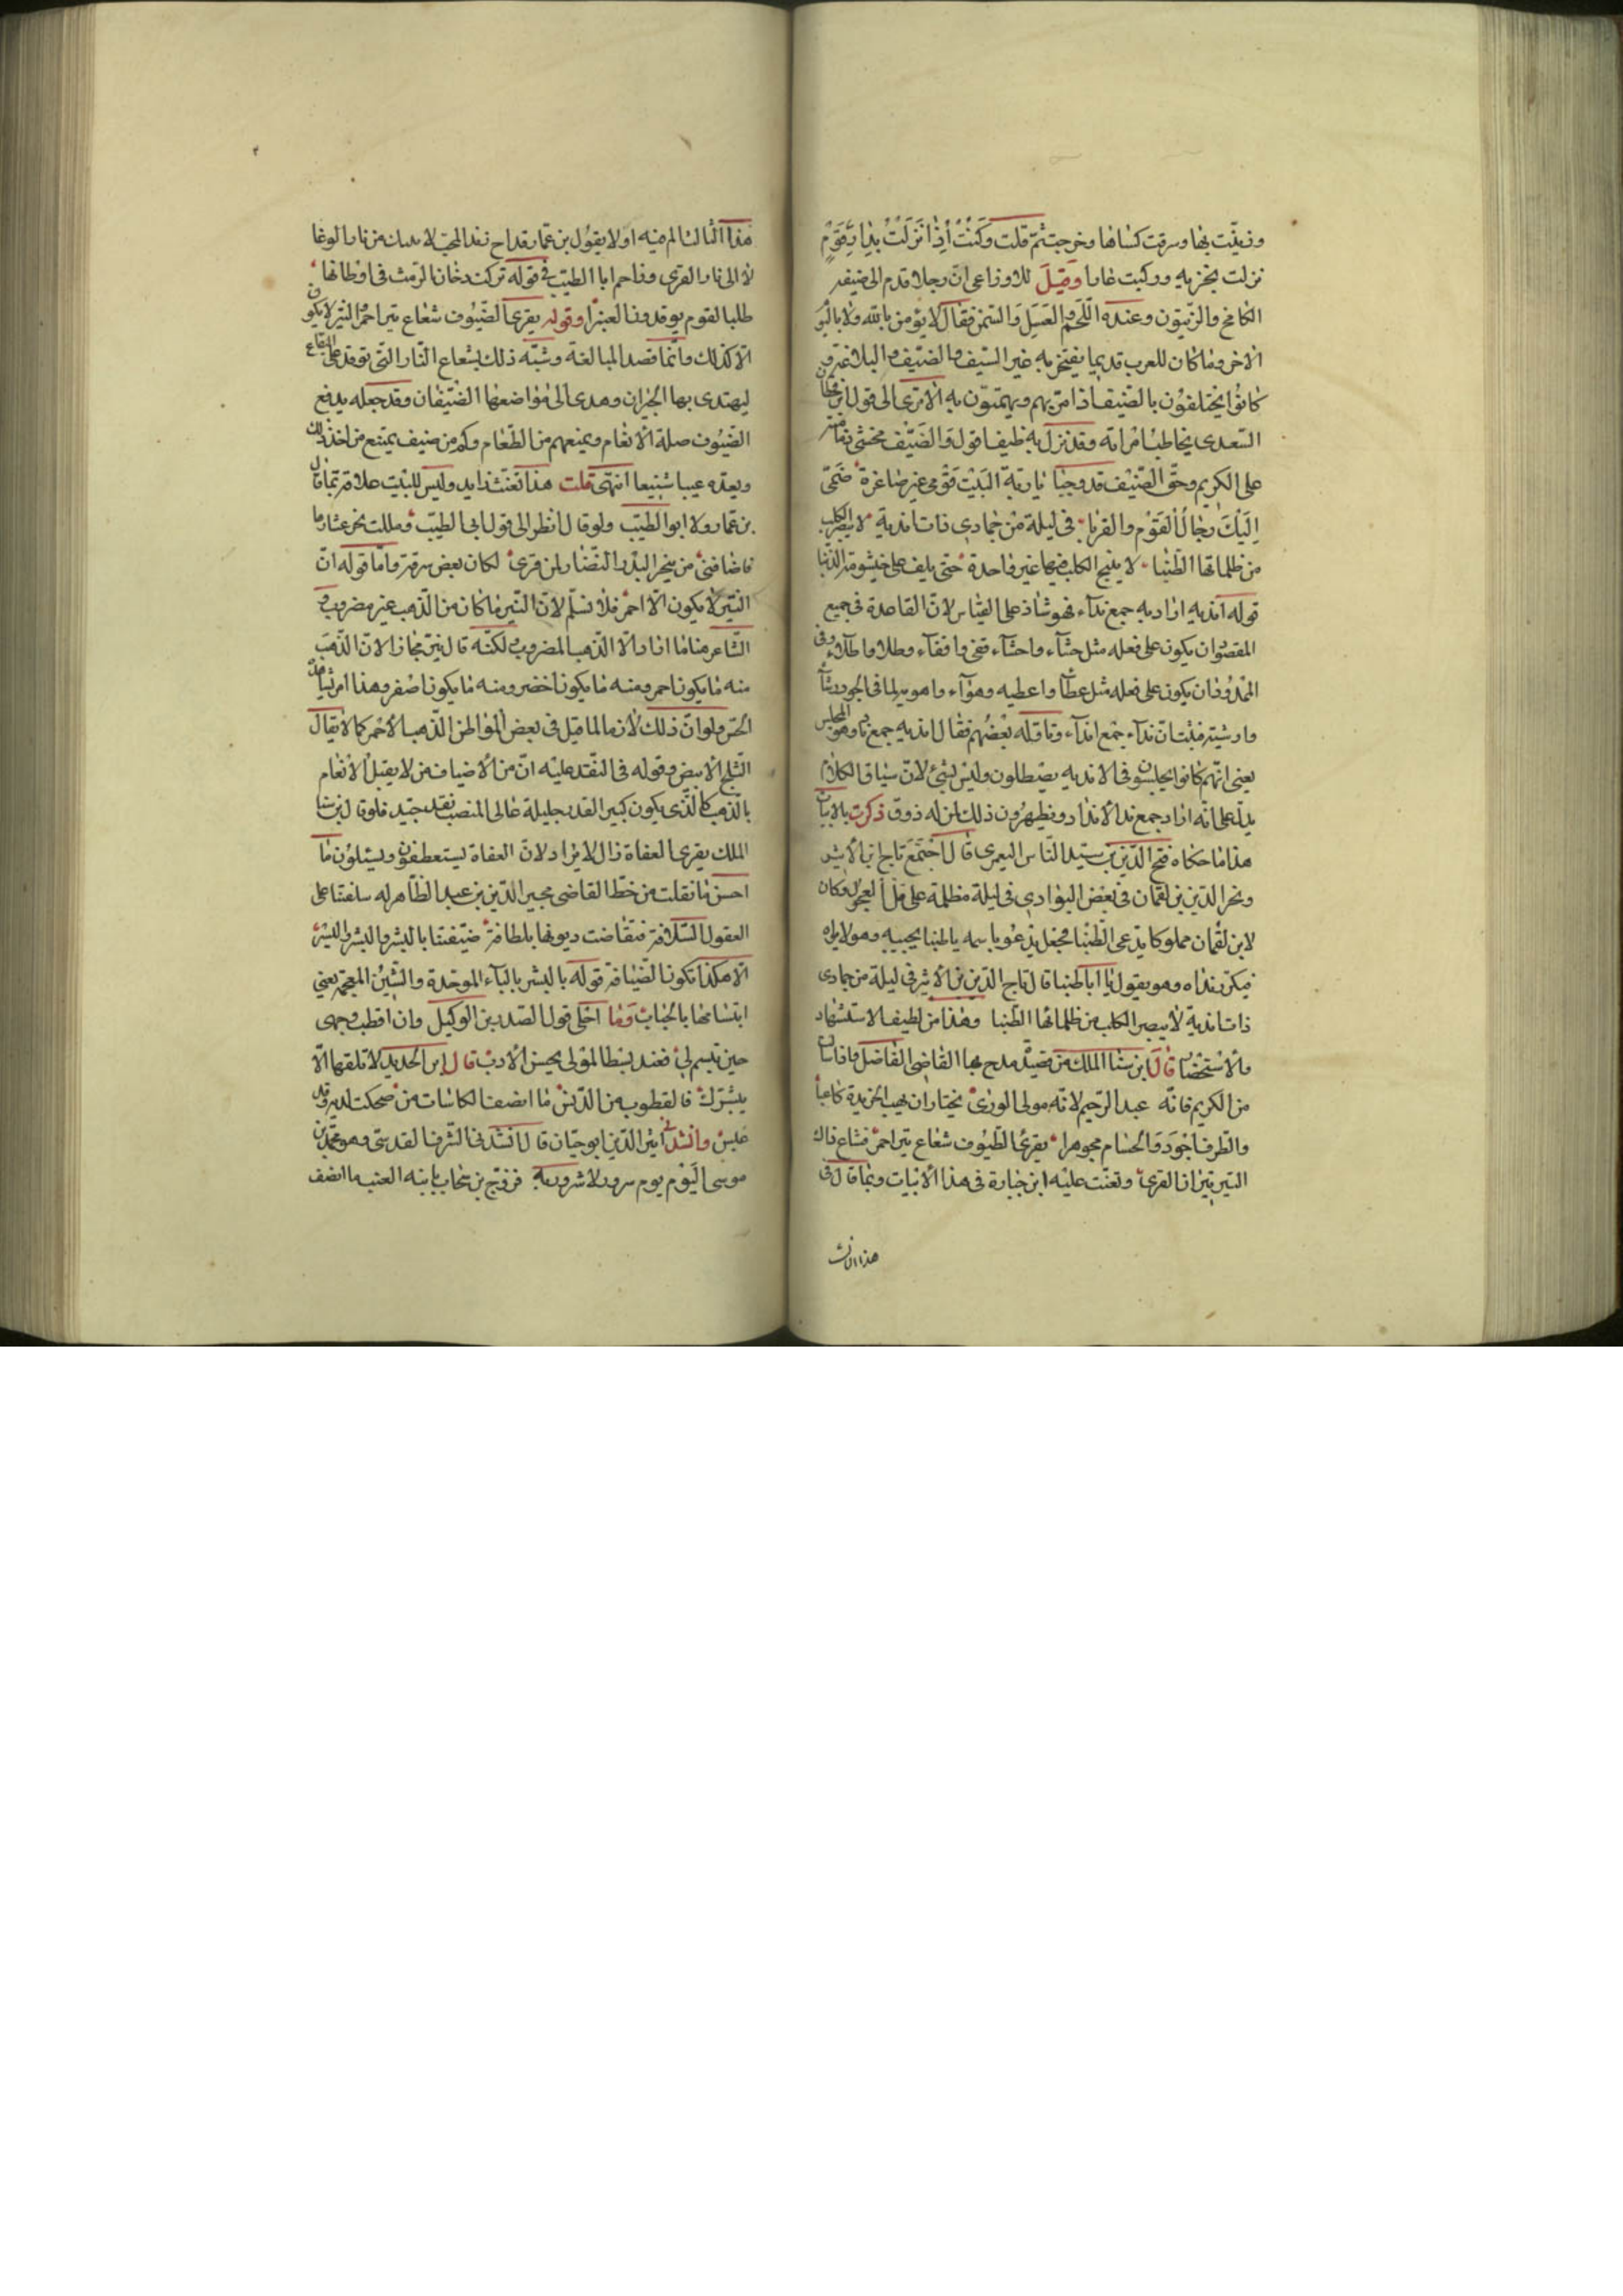 وزنيت بها وسرقت كساها وخرجت ثم قلت وكنت إذا نزلت بدار قوم
نزلت بخزيه وركبت عارا وقيل للاوزاعى ان رجلا قدم الى ضيفه
الكامخ والزيتون وعنده اللحم والعسل والسمن فقال لا يؤمن بالله ولا باليوم
الآخر وما كان للعرب قديما يفتخر به غير السيف والضيف والبلاغة
كانوا يختلفون بالضيف اذا مر بهم ويهتمون به الا ترى الى قول
السعدى يخاطب امراته وقد نزل به ضيف اقول والضيف مخشى ذمامته
على الكريم وحق الضيف قد وجبا يا ربة البيت قومى غير صاغرة ضمى
إليك رجال القوم والقربا في ليلة من جمادى ذات اندية لا يبصر الكلب
من ظلماتها الطنبا لا ينبح الكلب فيها غير واحدة حتى يلف على خيشومه الذنبا
قوله اندية اراد به جمع نداء فهو شاذ على القياس لان القاعدة في جميع
المقصور ان يكون على فعله مثل حشاء واحشاء قفى واقفاء وطلا واطلاء وفى
الممدود ان يكون على فعله مثل عطاء واعطيه وهواء واهويه لما فى الجو ورشاء
وارشية فثبت ان نداء جمع انداء وتاوله بعضهم فقال اندية جمع ندى وهو المجلس
يعنى انهم كانوا يجلسون فى الاندية يصطلون وليس بشئ لان سياق الكلام
يدل على انه اراد جمع ندا الانداد ويظهر من ذلك لمن له ذوق ذكرت بالابيات
هذا ما حكاه فتح الدين بن سيد الناس اليعمرى قال اجتمع تاج ابن الاثير
وفخر الدين بن لقمان فى بعض البوادى فى ليلة مظلمة على فكان
لابن لقمان مملوكا يدعى الطنبا فجعل يدعو باسمه يا طنبا يجيبه وهو لا يراه
فيكرر نداه وهو يقول يا اباطنبا قال تاج الدين بن الاثير فى ليلة من جمادى
ذات اندية لا يبصر الكلب من ظلمائها الطنبا وهذا من لطيف الاستشهاد
والاستحضار قال ابن سنا الملك من قصيدة مدح بها القاضى الفاضل
من الكريم فانه عبد الرحيم لانه مولى الورى يختار ان يهب الخريدة كاعبا
والطرف اجود والحسام مجوهرا يقرى الضيوف شعاع تبر احمر فشاع ذاك
التبر نيران القرى وتعنت عليه ابن جبارة فى هذا الابيات ومما قال فى
هذا الثالث
هذا الثالث الم فيه اولا بقول بن عمار قداح زند المجد لا ينفك من نار الوغا
الا الى نار القرى وزاحم ابا الطيب في قوله تركت دخان الرمث فى اوطانها
طلبا لقوم يوقدون العنبرا وقوله يقرى الضيوف شعاع تبر احمر التبر لا يكون
الا كذلك وانما قصد المبالغة وشبه ذلك بشعاع النار التى توقد على البقاع
ليهتدى بها الجيران وهدى الى مواضعها الضيفان وقد جعله يدفع
الضيوف صلة الانعام ويمنعهم من الطعام وكم من ضيف يمتنع من اخذ ذلك
ويعده عيبا شنيعا انتهى قلت هذا تعنت زايد وليس للبيت علاقة بما قال
بن عمار ولا ابو الطيب ولو قال انظر الى قول ابى الطيب ومللت نحر عشارها
فاضافنى من ينحر البدر النضار لمن قرى لكان بعض سرقة واما قوله ان
التبر لا يكون الا احمر فلا نسلم لان التبر ما كان من الذهب غير مضروب و
الشاعر هنا ما اراد الا الذهب المضروب لكنه قال تبر مجازا لان الذهب
منه ما يكون احمر ومنه ما يكون اخضر ومنه ما يكون اصفر وهذا امر
الحس ولو ان ذلك لازما لما قيل فى بعض المواطن الذهب الاحمر كما لا يقال
الثلج الابيض وقوله فى النقد عليه ان من الاضياف من لا يقبل الانعام
بالذهب كالذى يكون كبير القدر جليله عالى المنصب نقد جيد فلو قال بن سنا
الملك يقرى العفاة زال الايراد لان العفاة يستعطفون ويسئلون ما
احسن ما نقلت من خط القاضى مجير الدين بن عبد الظاهر له سلفتنا على
العقول السلافة فتقاضت ديونها بلطافة ضيفتنا بالبشر والبشر واليسر
الا هكذا تكون الضيافة قوله بالبشر بالباء الموحدة والشين المعجمة يعنى
ابتسامها بالحباب وما احلى قول الصدر بن الوكيل وان اقطب وجهى
حين تبسم لى فعند بسط المولى يحسن الادب قال ابن الحديد لا تلقها الا
ببشرك فالقطوب من الدنس ما انصف الكاسات من ضحكت لديه وقد
عبس وانشدنى اثير الدين ابو حيان قال انشدنى الشرف القدسى وهو محمد بن
موسى اليوم يوم سرور لا شرور به فزوج بن سحاب بابنه العنب ما انصف